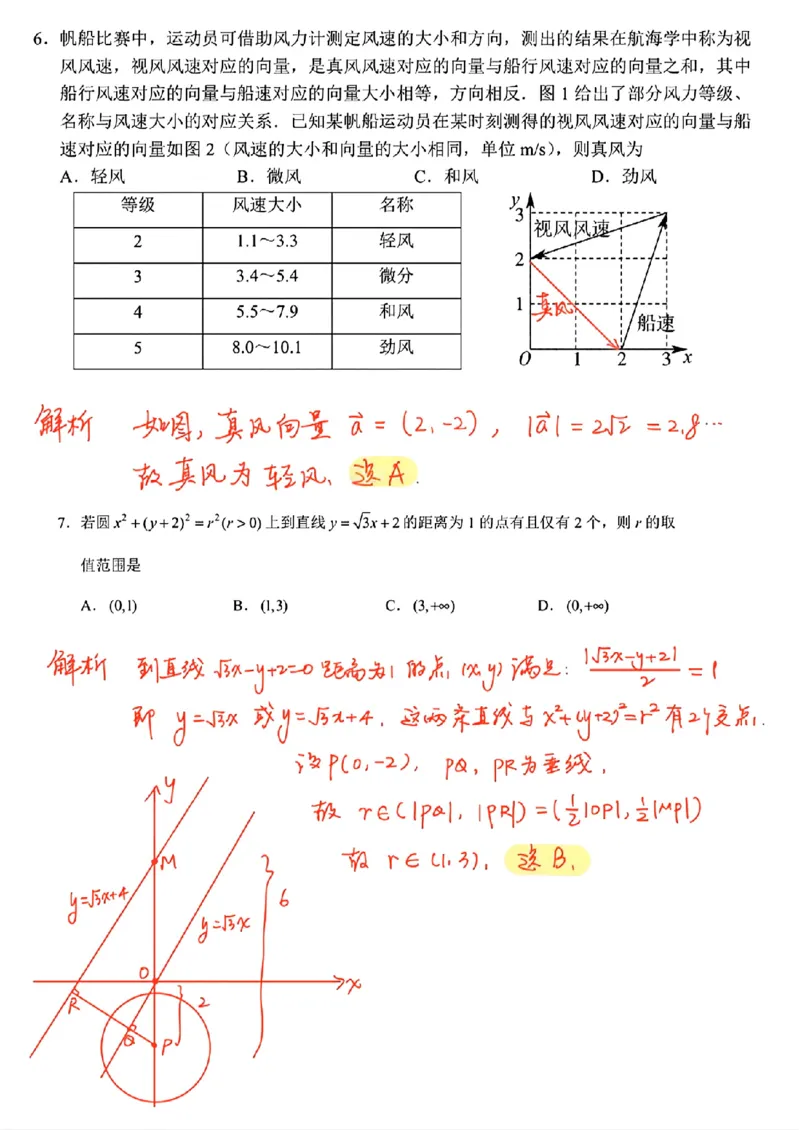 6．帆船比赛中，运动员可借助风力计测定风速的大小和方向，测出的结果在航海学中称为视
风风速，视风风速对应的向量，是真风风速对应的向量与船行风速对应的向量之和，其中
船行风速对应的向量与船速对应的向量大小相等，方向相反．图 1 给出了部分风力等级、
名称与风速大小的对应关系．已知某帆船运动员在某时刻测得的视风风速对应的向量与船
速对应的向量如图 2（风速的大小和向量的大小相同，单位 m/s），则真风为
A．轻风 B．微风 C．和风 D．劲风
等级 风速大小 名称
2 1.1～3.3 轻风
3 3.4～5.4 微分
4 5.5～7.9 和风
5 8.0～10.1 劲风
y
3
视风风速
2
1
真风
船速
O 1 2 3 x
解析 如图，真风向量 a⃗ = (2,-2)，|a⃗| = 2√2 = 2.8…
故真风为轻风、选 A．
7．若圆 x²+(y+2)²=r²(r>0) 上到直线 y=√3x+2 的距离为 1 的点有且仅有 2 个，则 r 的取
值范围是
A．(0,1) B．(1,3) C．(3,+∞) D．(0,+∞)
解析 到直线 √3x-y+2=0 距离为1 的点 (x,y) 满足：|√3x-y+2|/2 = 1
即 y=√3x 或 y=√3x+4，这两条直线与 x²+(y+2)²=r² 有2个交点．
设 P(0,-2)，PQ，PR为垂线，
故 r∈(|PQ|, |PR|) = (½|OP|, ½|MP|)
故 r∈(1,3)，选 B、
y
M
y=√3x+4
6
y=√3x
O
x
R
2
Q
P